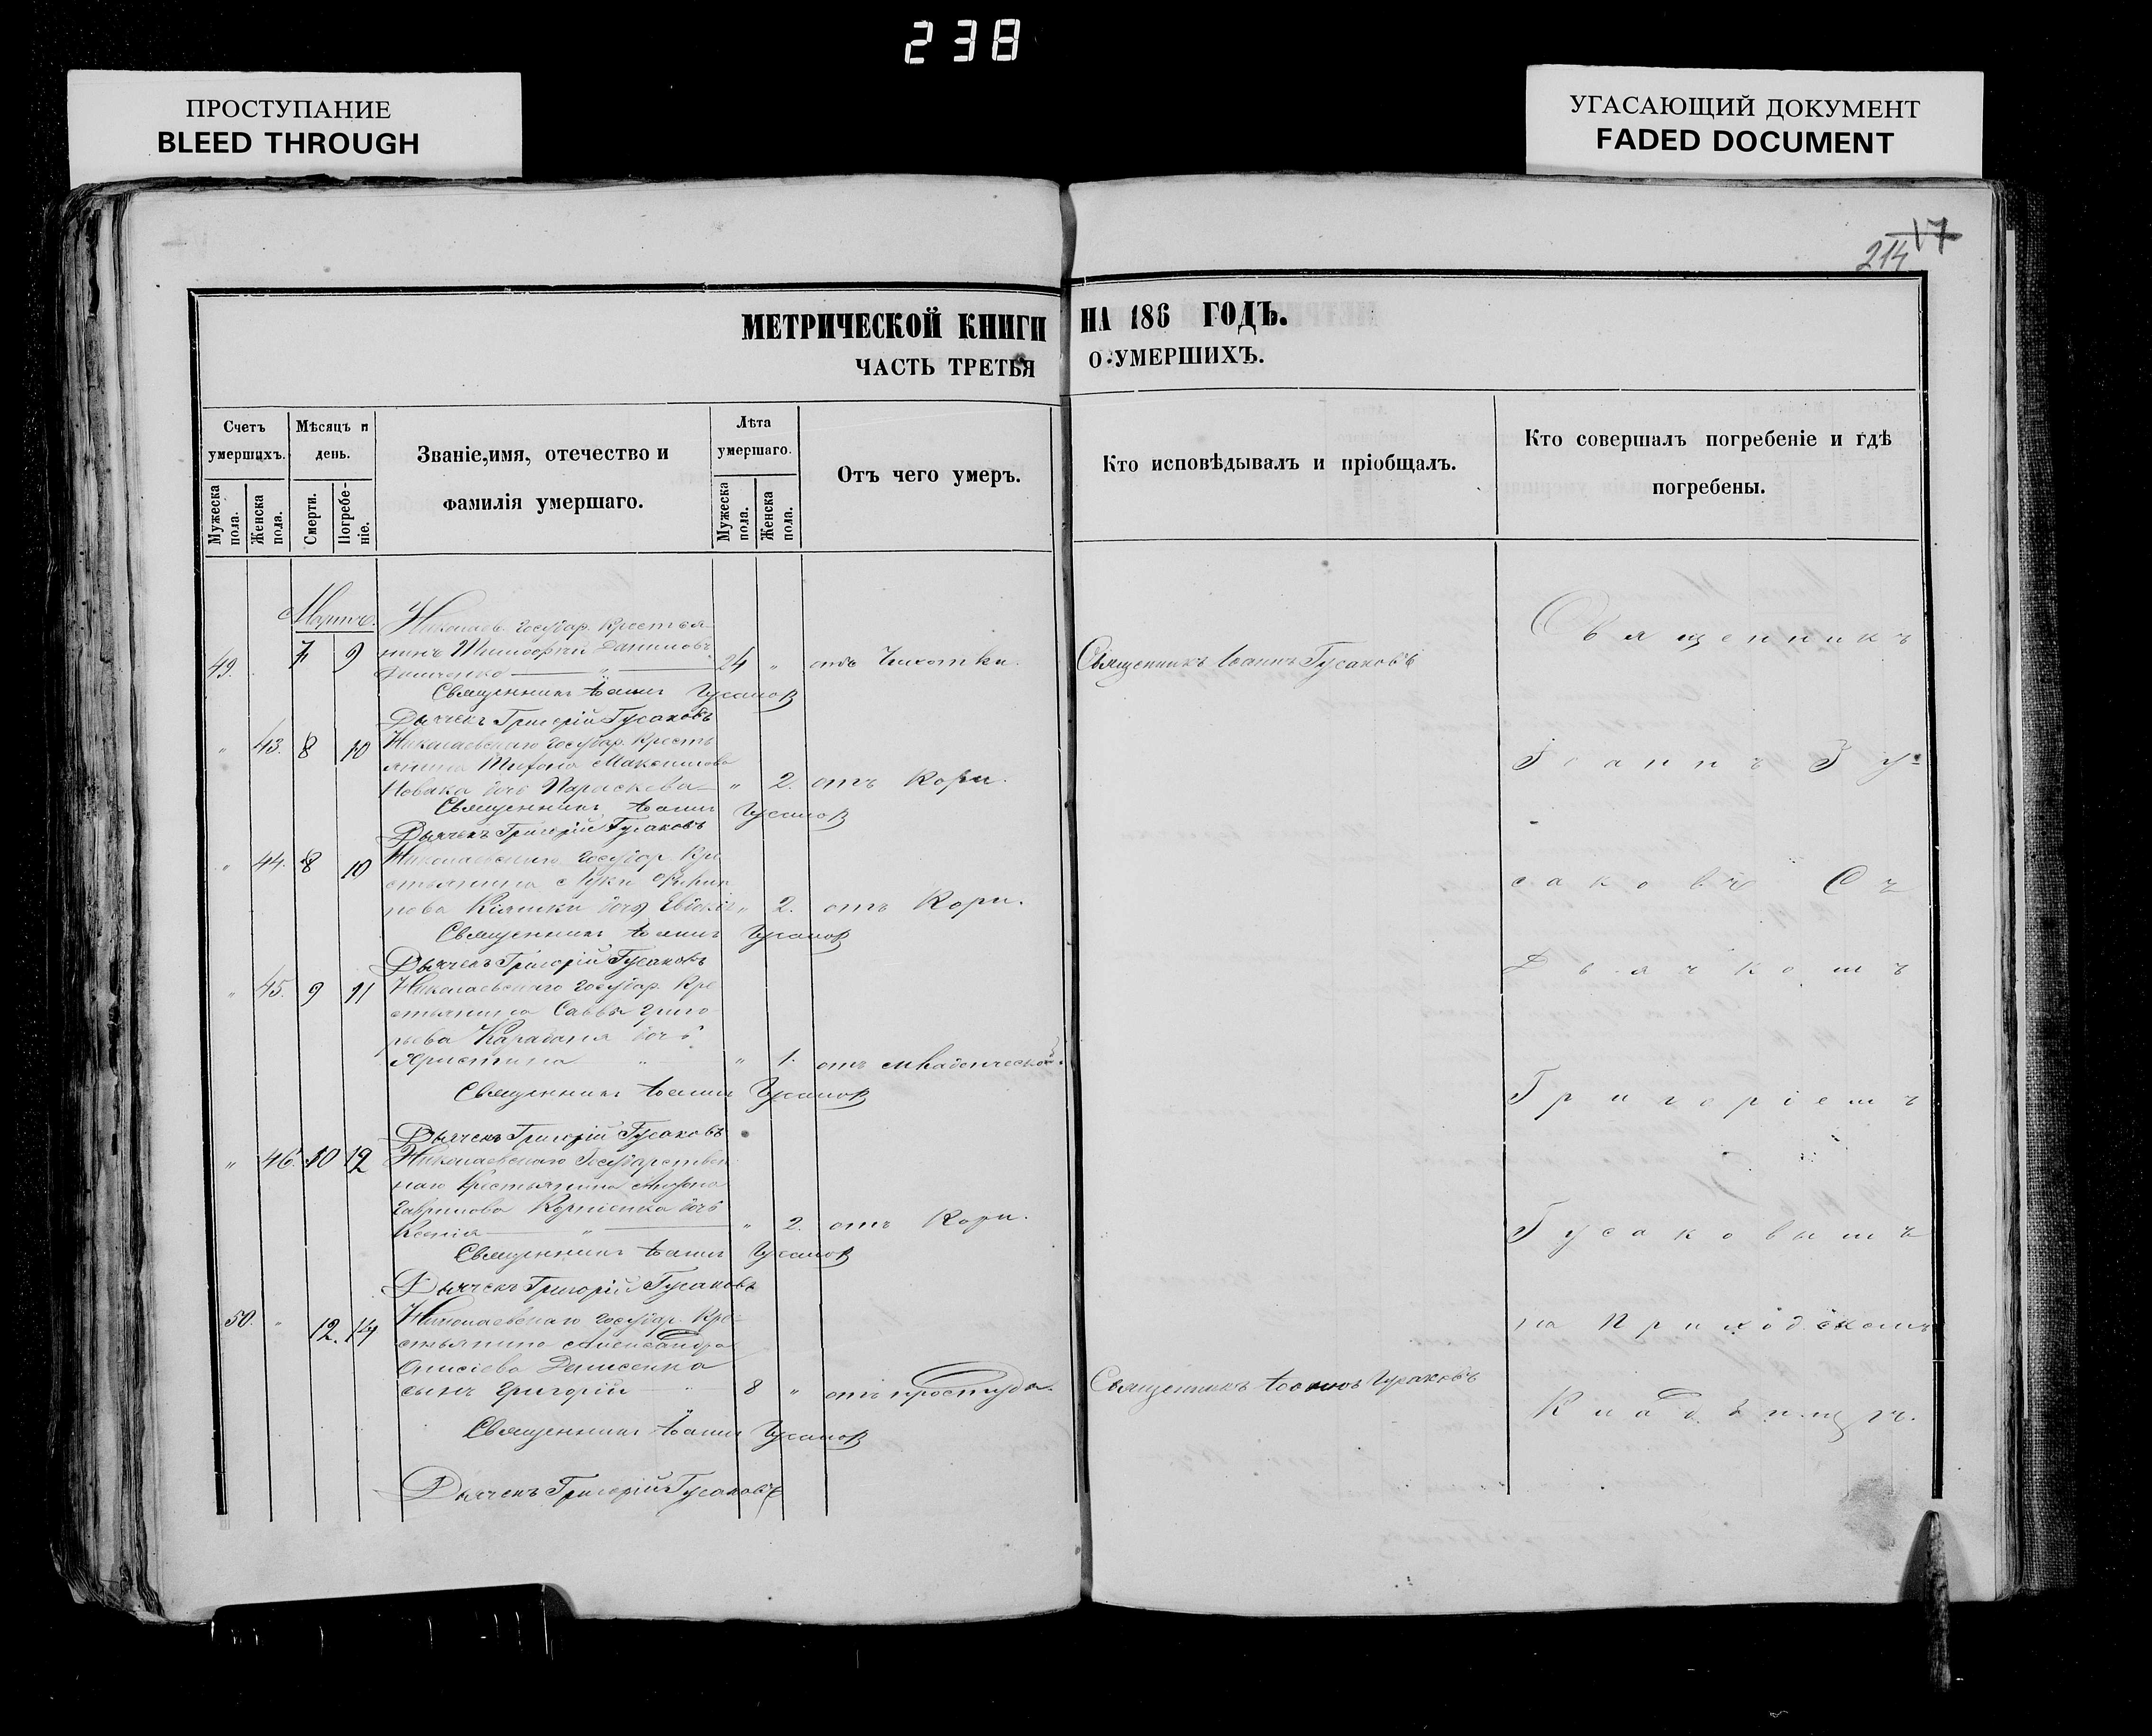 238
ПРОСТУПАНИЕ
BLEED THROUGH
УГАСАЮЩИЙ ДОКУМЕНТ
FADED DOCUMENT
17
214
МЕТРИЧЕСКОЙ КНИГИ НА 186 ГОДЪ.
ЧАСТЬ ТРЕТЬЯ О УМЕРШИХЪ.
Счетъ умершихъ.
Мужеска пола.
Женска пола.
Мѣсяцъ и день.
Смерти.
Погребеніе.
Званіе, имя, отечество и фамилія умершаго.
Лѣта умершаго.
Мужеска пола.
Женска пола.
Отъ чего умеръ.
Кто исповѣдывалъ и пріобщалъ.
Кто совершалъ погребеніе и гдѣ погребены.
Мартъ.
Николаев. государ. крестья-
49. 7 9 нинъ Тимофей Даниловъ
24 " отъ Чихотки. Священникъ Іоаннъ Гусаковъ
Священникъ Іоаннъ Гусаков
Дьячекъ Григорій Гусаковъ
" 43. 8 10 Николаевскаго государ. кресть
янина Максимова
Новака дочь Параскева " 2. отъ Кори.
Священникъ Іоаннъ Гусаков
Дьячекъ Григорій Гусаковъ
" 44. 8 10 Николаевскаго государ. кре
стьянина Луки
дочь " 2. отъ Кори.
Священникъ Іоаннъ Гусаков
Дьячекъ Григорій Гусаковъ
" 45. 9 11 Николаевскаго государ. кре
стьянина Саввы Григо
рьева дочь
Христина " " 1. отъ младенческой.
Священникъ Іоаннъ Гусаков
Дьячекъ Григорій Гусаковъ
" 46. 10 12 Николаевскаго Государствен
наго крестьянина
Гаврилова Корніенка дочь
Ксенія " " 2. отъ Кори.
Священникъ Іоаннъ Гусаков
Дьячекъ Григорій Гусаковъ
50. " 12. 14 Николаевскаго государ. кре-
стьянина Александра
Онисіева Денисенка
сынъ Григорій " 8 " отъ простуды. Священникъ Іоаннъ Гусаковъ
Священникъ Іоаннъ Гусаков
Дьячекъ Григорій Гусаковъ
Священникъ
Іоаннъ Гу-
саковъ Съ
Дьячкомъ
Григоріемъ
Гусаковымъ
на Приходскомъ
Кладбищѣ.